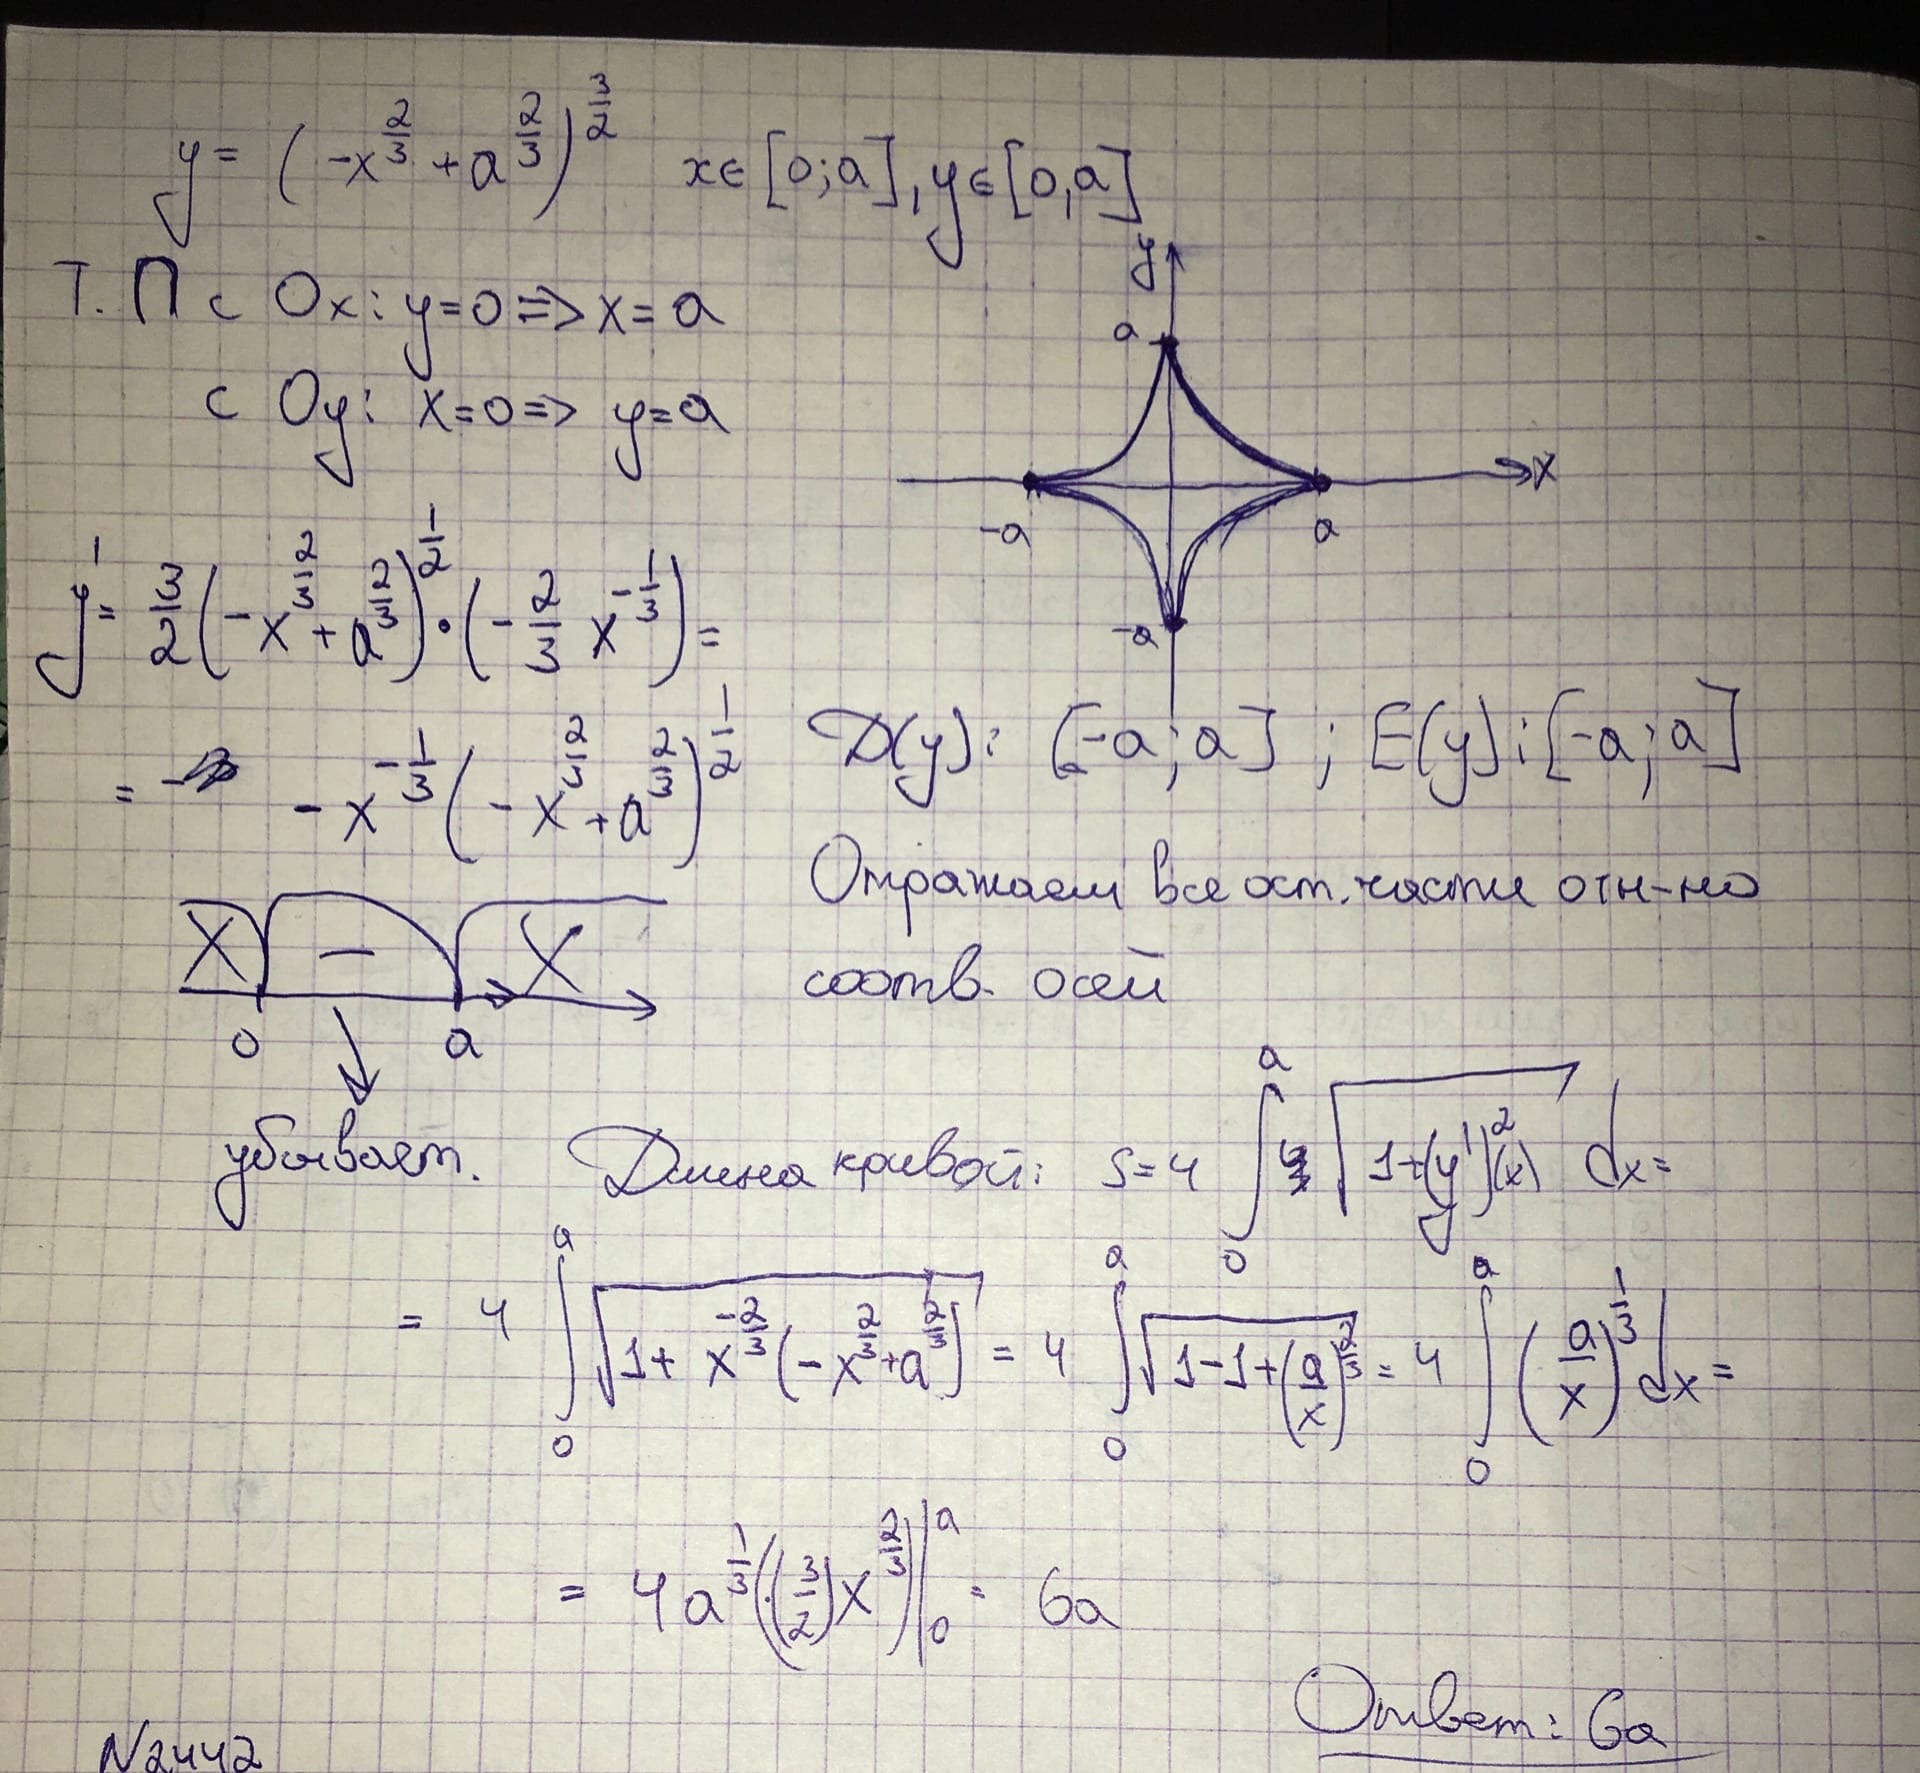 y = (-x^{2/3} + a^{2/3})^{3/2}   x∈[0;a], y∈[0,a]
Т. П с Ox: y=0 => x=a
с Oy: x=0 => y=a
y
a
x
-a
a
-a
y' = 3/2 (-x^{2/3} + a^{2/3})^{1/2} · (-2/3 x^{-1/3}) =
= - x^{-1/3} (-x^{2/3} + a^{2/3})^{1/2}
D(y): [-a; a] ; E(y): [-a; a]
Отражаем все ост. части отн-но
соотв. осей
X − X
0 a
убывает.
Длина кривой: S = 4 ∫_0^a √(1+(y')^2(x)) dx =
= 4 ∫_0^a √(1 + x^{-2/3}(-x^{2/3} + a^{2/3})) = 4 ∫_0^a √(1-1+(a/x)^{2/3}) = 4 ∫_0^a (a/x)^{1/3} dx =
= 4a^{1/3} (·(3/2) x^{2/3}) |_0^a = 6a
Ответ: 6a
N2442